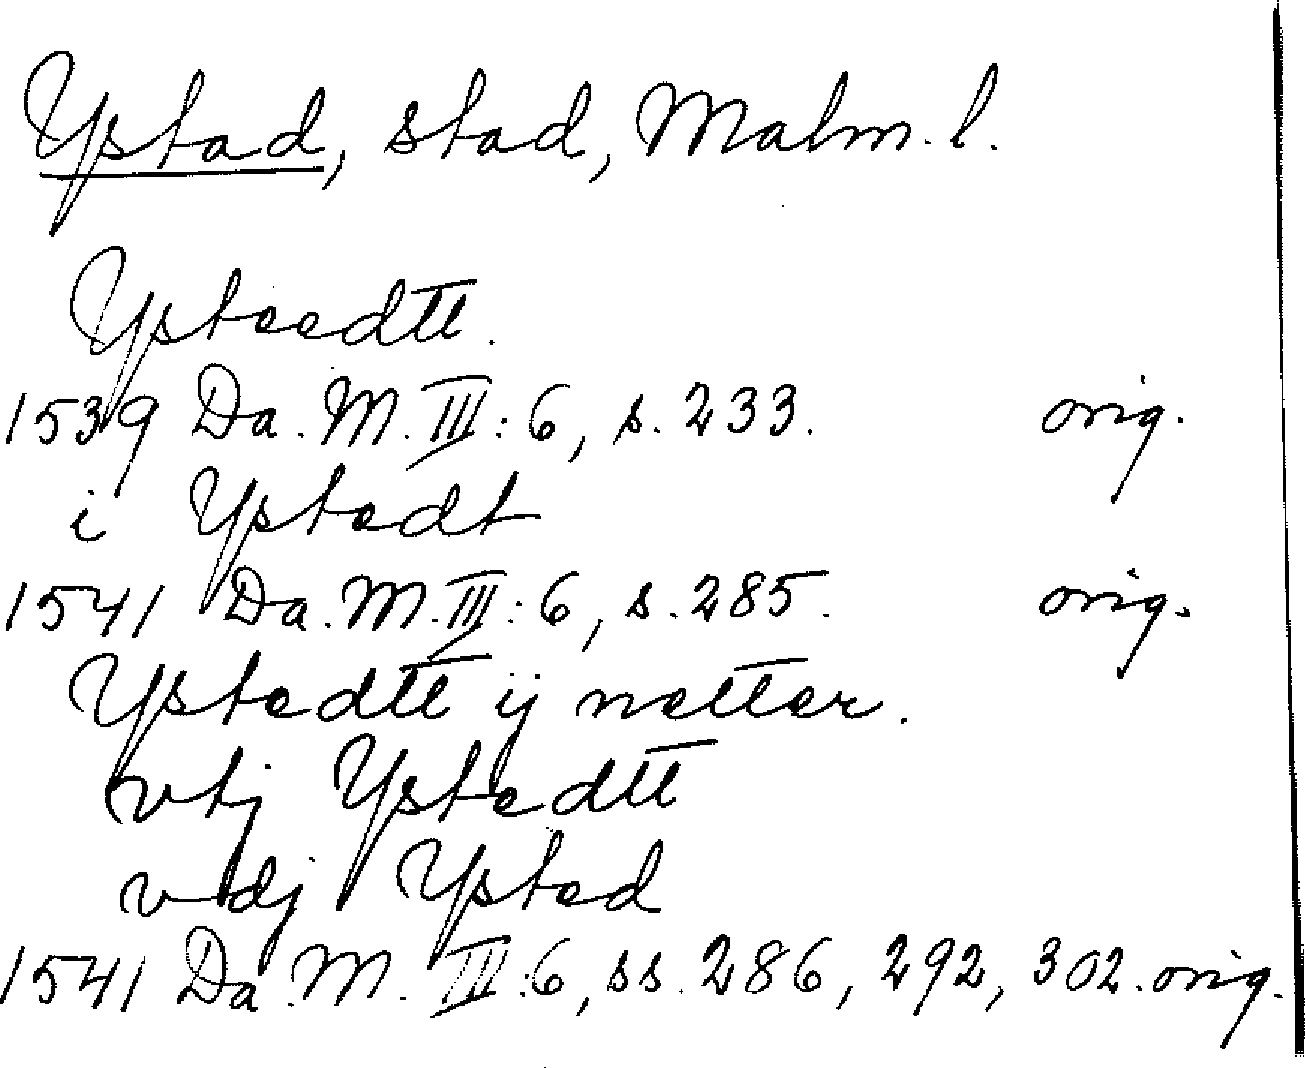 Ystad, stad, Malm. l.
Ysteedtt.
1539 Da. M. III: 6, s. 233. orig.
i Ystedt
1541 Da. M. III: 6, s. 285. orig.
Ystedtt ij netter.
vtj Ystedtt
vdj Ysted
1541 Da. M. III: 6, ss. 286, 292, 302. orig.